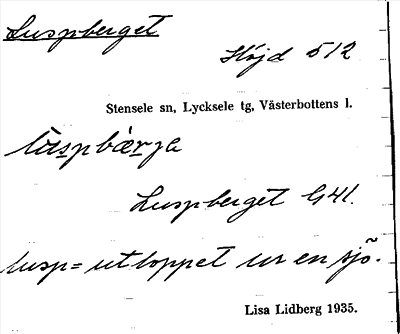 Luspberget
Höjd 512
Stensele sn, Lycksele tg, Västerbottens l.
Luspberget G41.
lusp = utloppet ur en sjö.
Lisa Lidberg 1935.